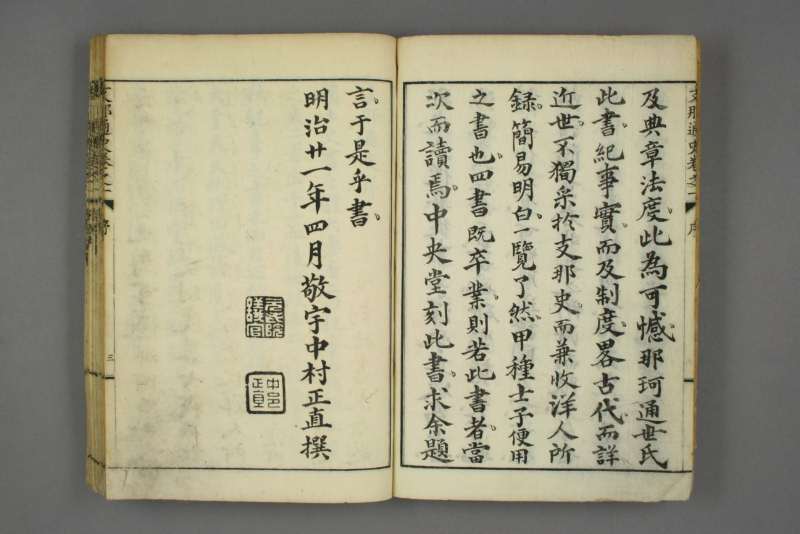 及典章法度。此為可憾。那珂通世氏
此書。紀事實而及制度。畧古代而詳
近世。不獨采於支那史。而兼收洋人所
錄。簡易明白。一覽了然。甲種士子便用
之書也。四書既卒業。則若此書者。當
次而讀焉。中央堂刻此書。求余題
言。于是乎書。
明治廿一年四月敬宇中村正直撰